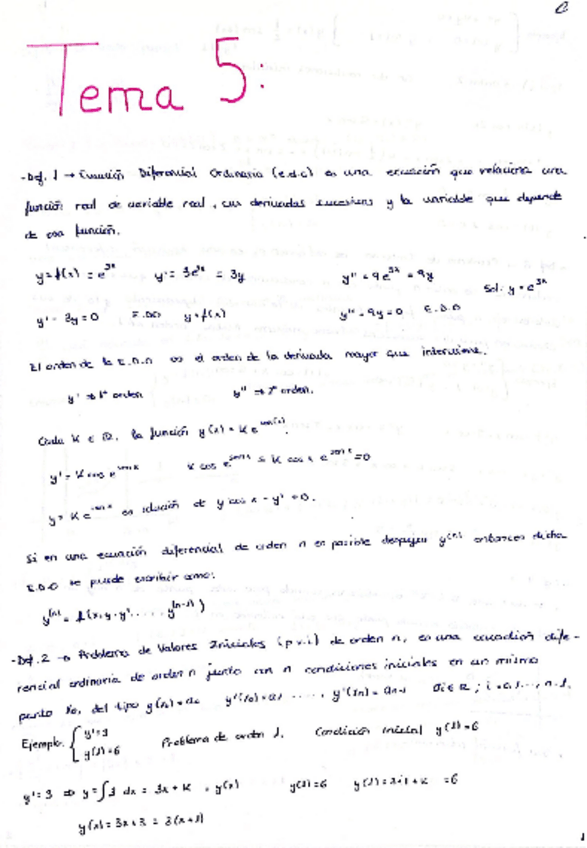 Tema 5:
-Def. 1 → Ecuación Diferencial Ordinaria (e.d.o) es una ecuación que relaciona una
función real de variable real, sus derivadas sucesivas y la variable que depende
de esa función.
y=f(x) = e^3x y' = 3e^3x = 3y y'' = 9e^3x = 9y Sol: y = e^3x
y' - 3y = 0 E.D.O y=f(x) y'' - 9y = 0 E.D.O
El orden de la E.D.O es el orden de la derivada mayor que interviene.
y' ⇒ 1º orden y'' ⇒ 2º orden.
Cada K ∈ ℝ, la función y(x) = K e^sen(x).
y' = K cos e^sen x K cos e^sen x = K cos x e^sen x = 0
y = K e^sen x es solución de y cos x - y' = 0.
Si en una ecuación diferencial de orden n es posible despejar y^(n) entonces dicha
E.D.O se puede escribir como:
y^(n) = f(x, y, y', ..., y^(n-1))
-Def. 2 → Problema de Valores Iniciales (p.v.i) de orden n, es una ecuación dife-
rencial ordinaria de orden n junto con n condiciones iniciales en un mismo
punto x0, del tipo y(x0) = a0 y'(x0) = a1 ...., y'(x0) = an-1 ai ∈ ℝ ; i = 0, 1, ..., n-1.
Ejemplo: { y' = 3
y(1) = 6 Problema de orden 1. Condición inicial y(1) = 6
y' = 3 ⇒ y = ∫3 dx = 3x + K = y(x) y(1) = 6 y(1) = 3·1 + K = 6
y(x) = 3x + 3 = 3(x+1)
1